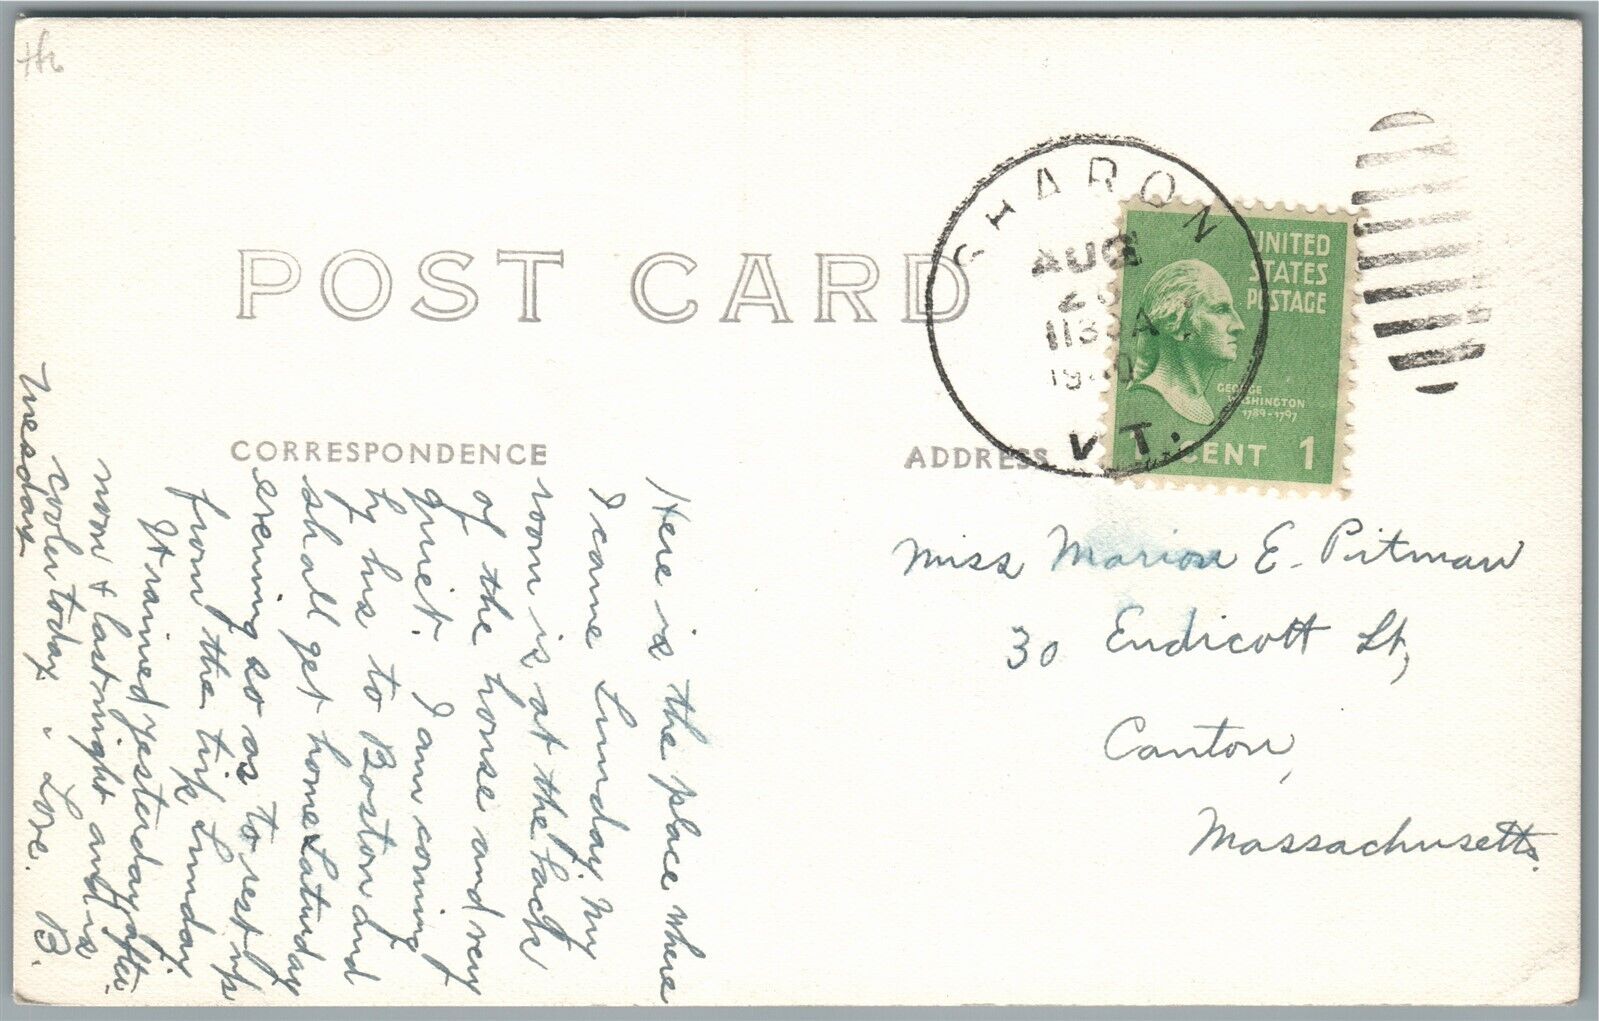 POST CARD
CORRESPONDENCE
ADDRESS
SHARON
AUG
1940
VT.
UNITED
STATES
POSTAGE
GEORGE
WASHINGTON
1789-1797
1 CENT 1
Miss Marion E. Pitman
30 Endicott St,
Canton,
Massachusetts.
Here is the place where
I came Sunday. My
room is at the back
of the house and very
quiet. I am coming
by bus to Boston and
shall get home Saturday
evening so as to rest up
from the trip Sunday.
It rained yesterday after-
noon & last night and is
cooler today. Love. B.
Tuesday